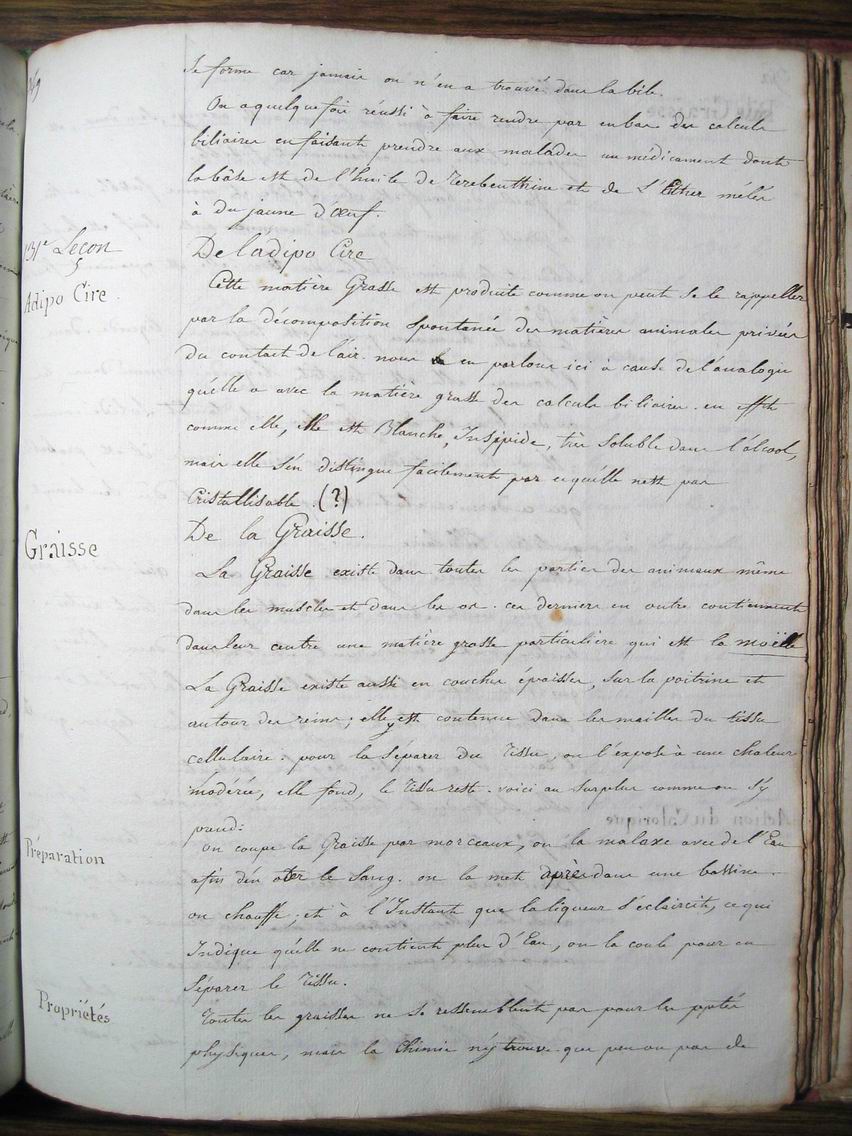 se forme car jamais on n'en a trouvé dans la bile.
On a quelque fois réussi à faire rendre par en bas des calculs
biliaires en faisant prendre aux malades un médicament dont
la bâse est de l'huile de Terebenthine et de L'Ether mélés
à du jaune d'Œuf.
131e Leçon
De ladipo Cire
Adipo Cire.
Cette matière Grasse est produite comme on peut se le rappeller
par la décomposition spontanée des matières animales privées
du contact de l'air. nous en parlons ici à cause de l'analogie
qu'elle a avec la matière grasse des calculs biliaires. en effet
comme elle, elle est Blanche, Insipide, très soluble dans l'alcool,
mais elle s'en distingue facilement par ce qu'elle nest pas
Cristallisable. (?)
Graisse
De la Graisse.
La Graisse existe dans toutes les parties des animaux même
dans les muscles et dans les os. ces derniers en outre contiennent
dans leur centre une matière grasse particulière qui est la moëlle
La Graisse existe aussi en couches épaisses, sur la poitrine et
autour des reins; elle y est contenue dans les mailles du tissu
cellulaire: pour la séparer du Tissu, on l'expose à une chaleur
modérée, elle fond, le Tissu reste. voici au surplus comme on s'y
prend:
Préparation
on coupe la Graisse par morceaux, on la malaxe avec de l'Eau
afin d'en oter le sang. on la met après dans une bassine.
on chauffe; et à l'Instant que la liqueur s'éclaircit, ce qui
Indique qu'elle ne contient plus d'Eau, on la coule pour en
séparer le Tissu.
Propriétés
Toutes les graisses ne se ressemblent pas pour les ppétés
physiques, mais la Chimie n'y trouve que peu ou pas de